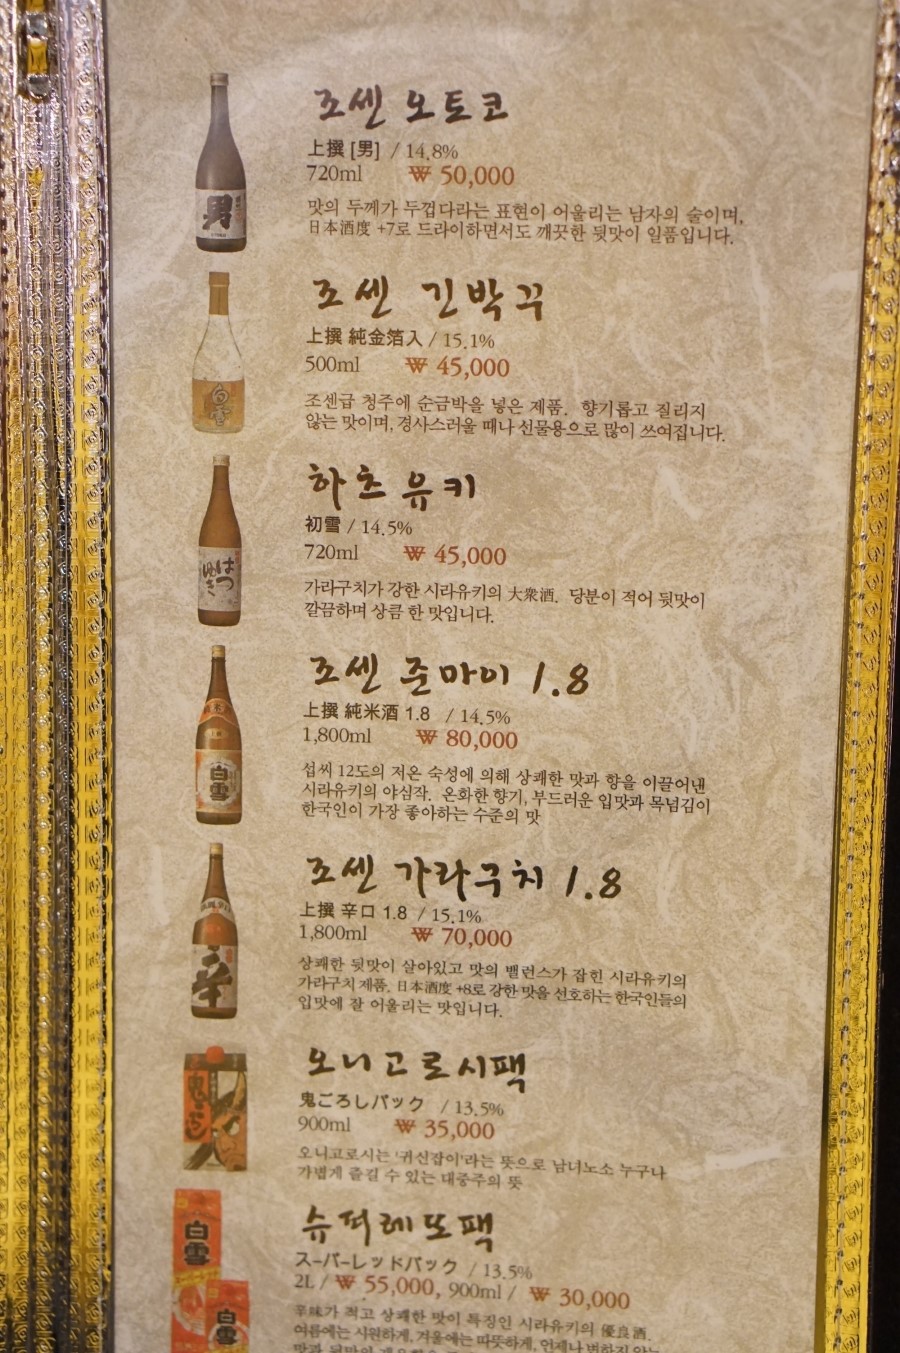 조센 오토코
上撰 [男] / 14.8%
720ml ₩ 50,000
맛의 두께가 두껍다라는 표현이 어울리는 남자의 술이며,
日本酒度 +7로 드라이하면서도 깨끗한 뒷맛이 일품입니다.
조센 긴박꾸
上撰 純金箔入 / 15.1%
500ml ₩ 45,000
조센급 청주에 순금박을 넣은 제품. 향기롭고 질리지
않는 맛이며, 경사스러울 때나 선물용으로 많이 쓰여집니다.
하츠유키
初雪 / 14.5%
720ml ₩ 45,000
가라구치가 강한 시라유키의 大衆酒. 당분이 적어 뒷맛이
깔끔하며 상큼 한 맛입니다.
조센 준마이 1.8
上撰 純米酒 1.8 / 14.5%
1,800ml ₩ 80,000
섭씨 12도의 저온 숙성에 의해 상쾌한 맛과 향을 이끌어낸
시라유키의 야심작. 온화한 향기, 부드러운 입맛과 목넘김이
한국인이 가장 좋아하는 수준의 맛
조센 가라구치 1.8
上撰 辛口 1.8 / 15.1%
1,800ml ₩ 70,000
상쾌한 뒷맛이 살아있고 맛의 밸런스가 잡힌 시라유키의
가라구치 제품. 日本酒度 +8로 강한 맛을 선호하는 한국인들의
입맛에 잘 어울리는 맛입니다.
오니고로시팩
鬼ごろしパック / 13.5%
900ml ₩ 35,000
오니고로시는 '귀신잡이'라는 뜻으로 남녀노소 누구나
가볍게 즐길 수 있는 대중주의 뜻
슈퍼레또팩
スーパーレッドパック / 13.5%
2L / ₩ 55,000, 900ml / ₩ 30,000
辛味가 적고 상쾌한 맛이 특징인 시라유키의 優良酒.
여름에는 시원하게, 겨울에는 따뜻하게, 언제나 변하지 않는
男
白雪
はつ
ゆき
白雪
辛
鬼ごろし
白雪
白雪